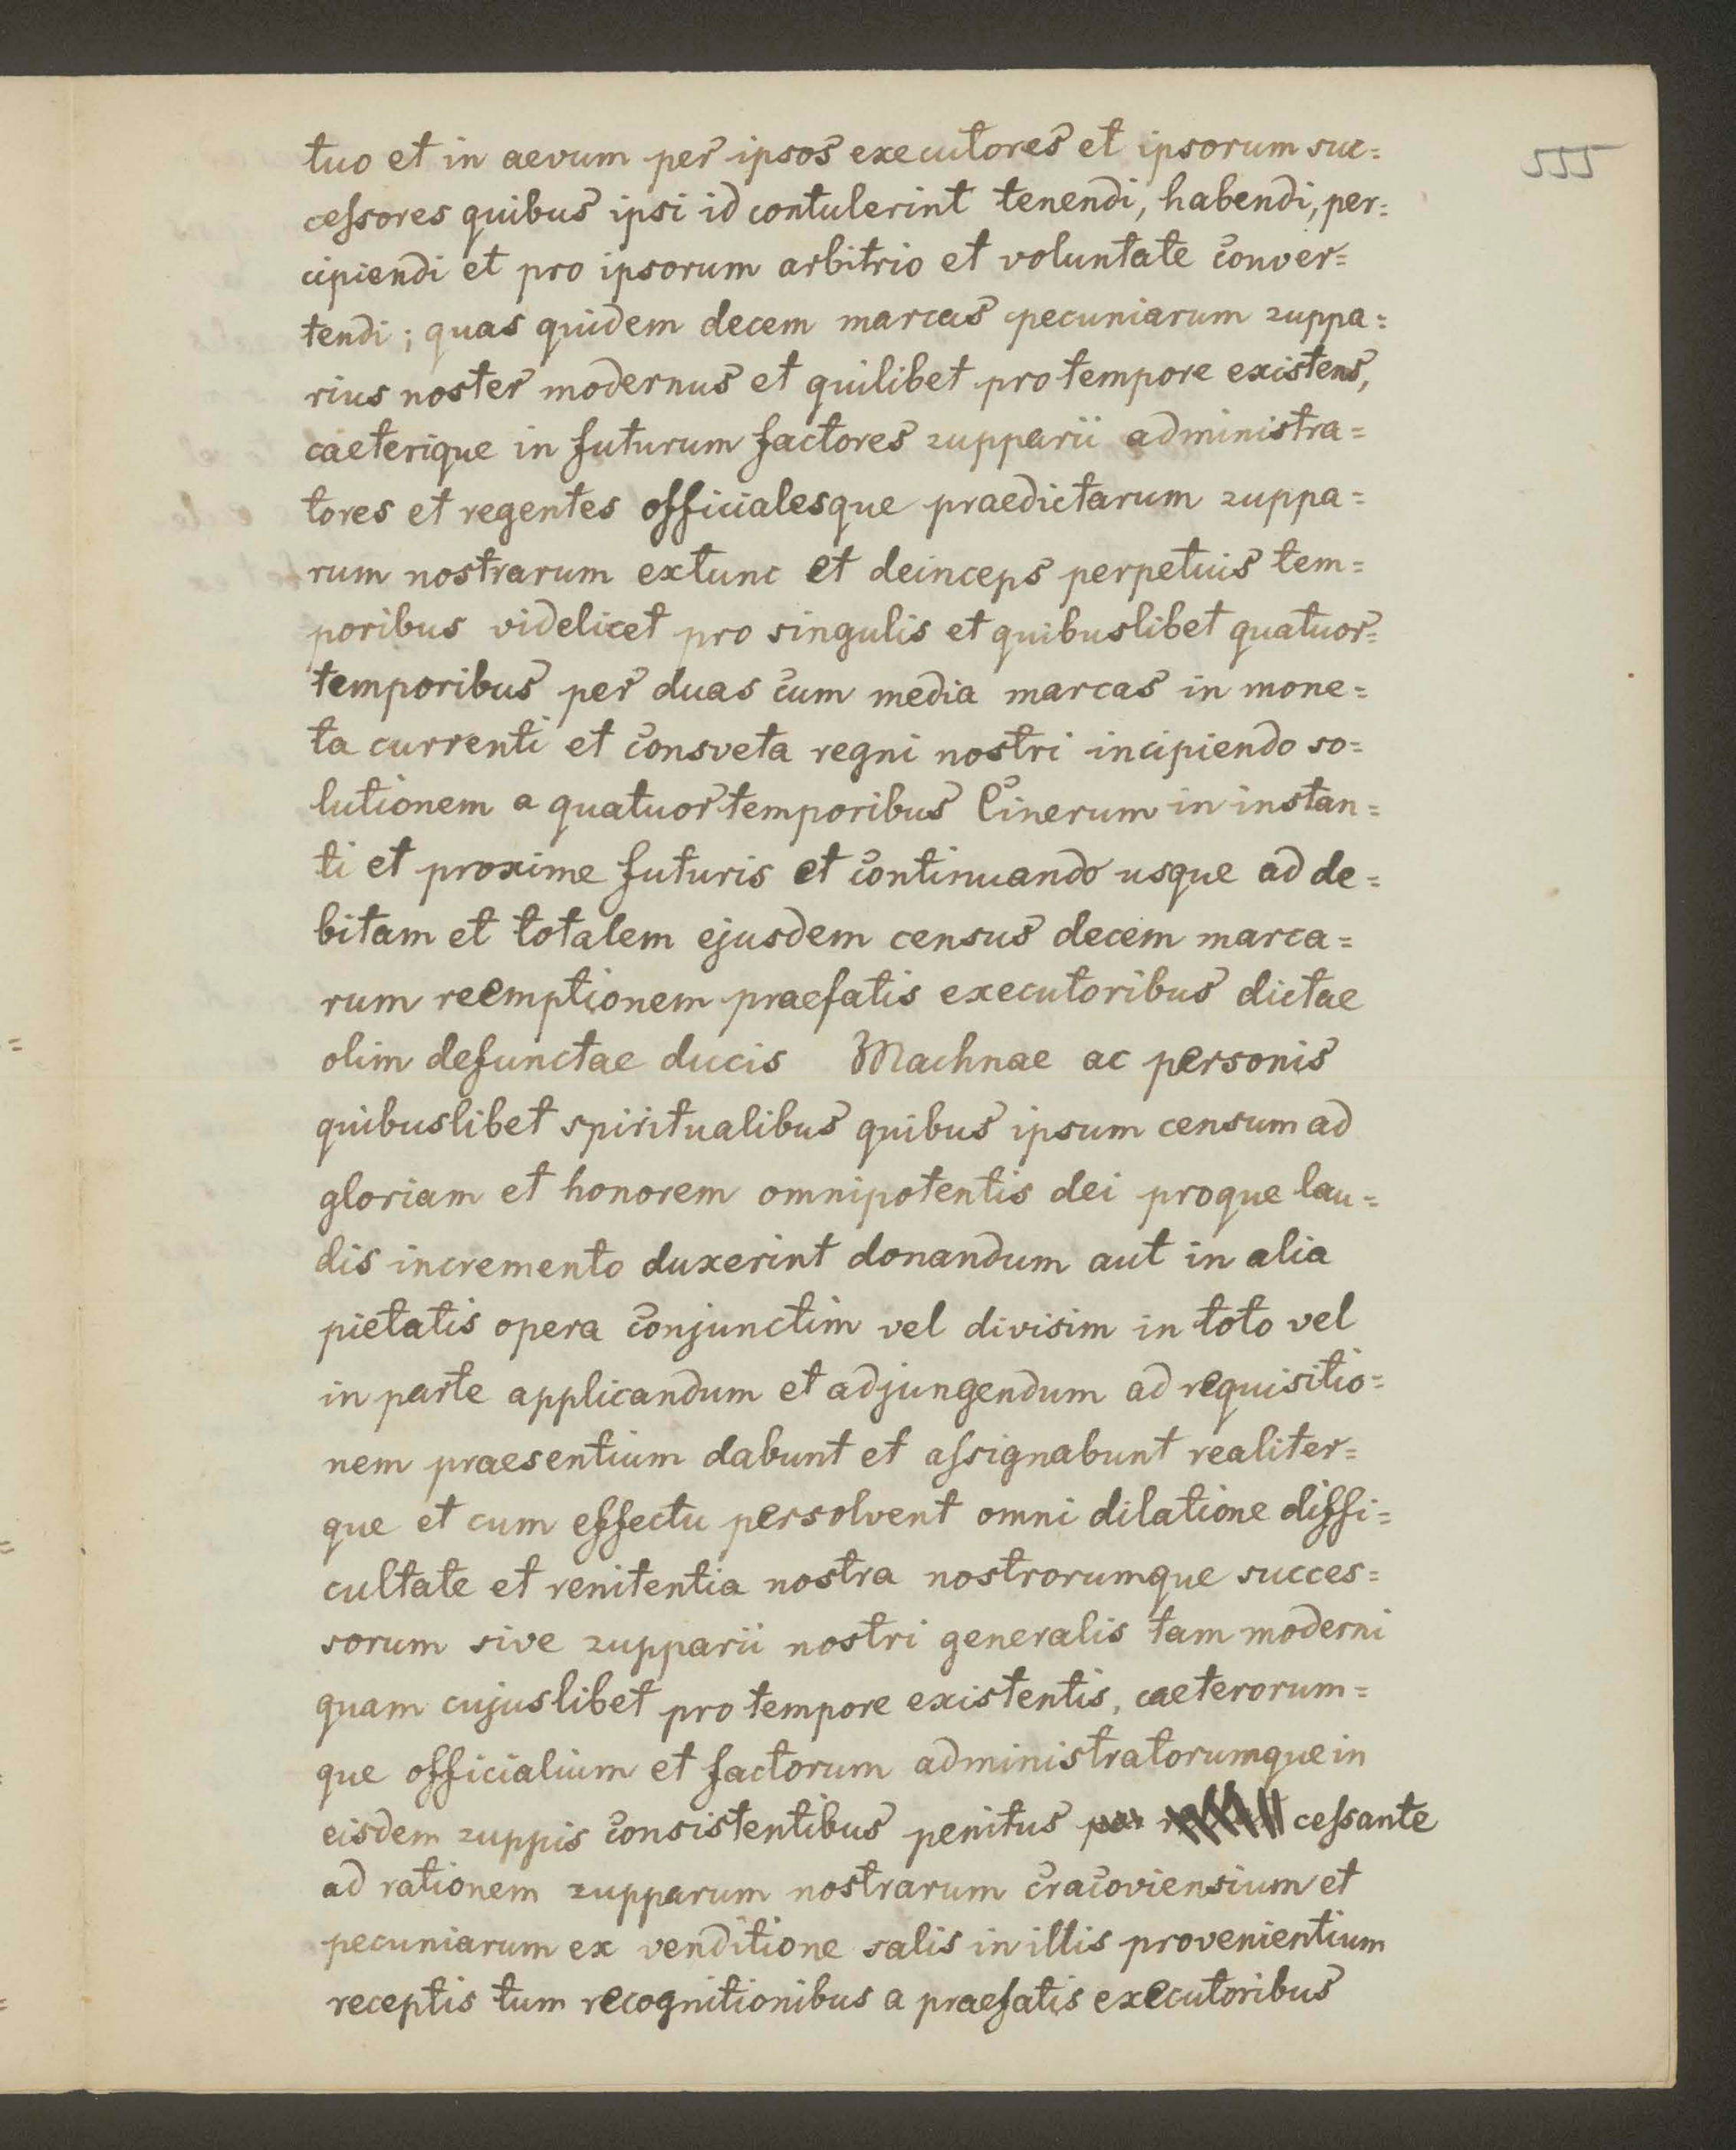 555
tuo et in aevum per ipsos executores et ipsorum suc=
ceſsores quibus ipsi id contulerint tenendi, habendi, per=
cipiendi et pro ipsorum arbitrio et voluntate conver=
tendi; quas quidem decem marcas pecuniarum zuppa=
rius noster modernus et quilibet pro tempore existens,
caeterique in futurum factores zupparii administra=
tores et regentes officialesque praedictarum zuppa=
rum nostrarum extunc et deinceps perpetuis tem=
poribus videlicet pro singulis et quibuslibet quatuor=
temporibus per duas cum media marcas in mone=
ta currenti et consveta regni nostri incipiendo so=
lutionem a quatuor temporibus Cinerum in instan=
ti et proxime futuris et continuando usque ad de=
bitam et totalem ejusdem census decem marca=
rum reemptionem praefatis executoribus dictae
olim defunctae ducis Machnae ac personis
quibuslibet spiritualibus quibus ipsum censum ad
gloriam et honorem omnipotentis dei proque lau=
dis incremento duxerint donandum aut in alia
pietatis opera conjunctim vel divisim in toto vel
in parte applicandum et adjungendum ad requisitio=
nem praesentium dabunt et aſsignabunt realiter=
que et cum effectu persolvent omni dilatione diffi=
cultate et renitentia nostra nostrorumque succes=
sorum sive zupparii nostri generalis tam moderni
quam cujuslibet pro tempore existentis, caeterorum=
que officialium et factorum administratorumque in
eisdem zuppis consistentibus penitus ceſsante
ad rationem zupparum nostrarum cracoviensium et
pecuniarum ex venditione salis in illis provenientium
receptis tum recognitionibus a praefatis executoribus